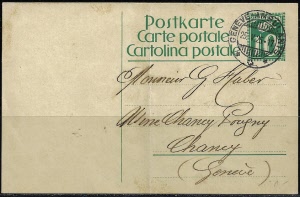 Postkarte
Carte postale
Cartolina postale
GENEVE
10
Monsieur G Haber
Mme Chancy Pougny
Chancy
(Genève)